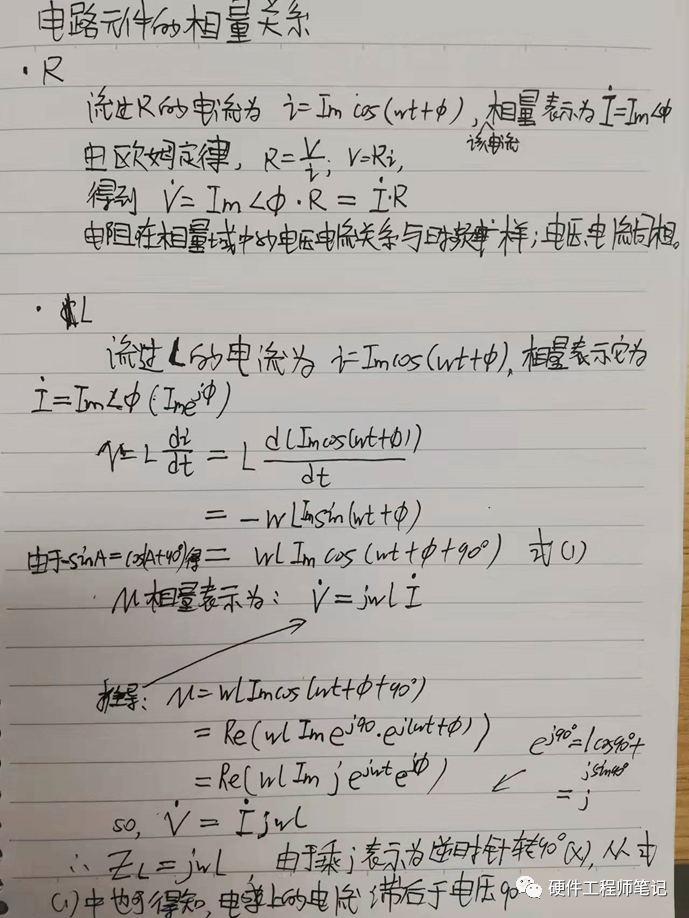 电路元件的相量关系
· R
流过R的电流为 i=Im cos(wt+φ), 相量表示为 İ=Im∠φ
该电流
由欧姆定律, R=V/i; V=Ri,
得到 V̇=Im∠φ·R=İ·R
电阻在相量域中的电压电流关系与时域一样;电压电流同相。
· L
流过L的电流为 i=Imcos(wt+φ), 相量表示它为
İ=Im∠φ(Ime^{jφ})
V=L di/dt = L d(Imcos(wt+φ))/dt
=-wLImsin(wt+φ)
由于-sinA=cos(A+90°)得= wLImcos(wt+φ+90°) 式(1)
u相量表示为: V̇=jwLİ
推导: u=wLImcos(wt+φ+90°)
=Re(wLIme^{j90}·e^{j(wt+φ)})
e^{j90°}=1cos90°+
=Re(wLImje^{jwt}e^{jφ})
jsin90°
=j
so, V̇=İjwL
∴ZL=jwL 由于乘j表示为逆时针转90°(x), 从式
(1)中也可得知,电感上的电流滞后于电压90
硬件工程师笔记